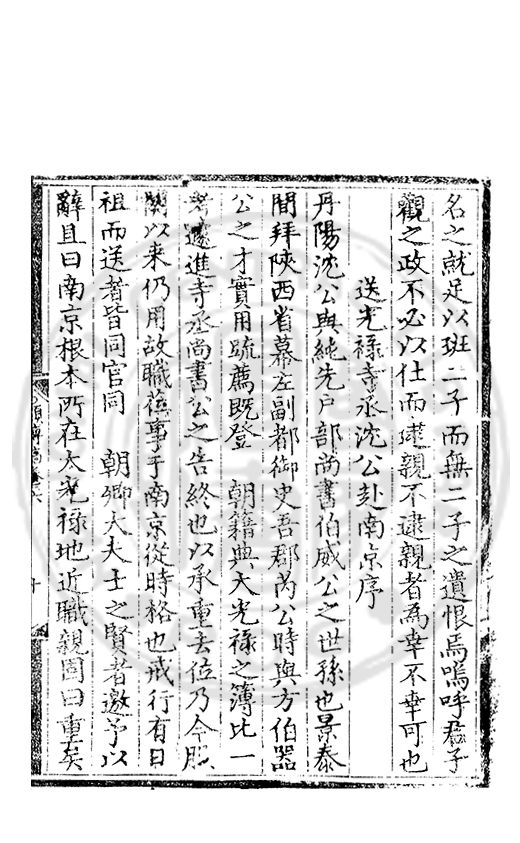 名之就足以班二子而無二子之遺恨焉嗚呼君子
觀之政不必以仕而逮親不逮親者為幸不幸可也
送光禄寺丞沈公赴南京序
丹陽沈公與純先戸部尚書伯威公之世孫也景泰
間拜陝西省幕左副都御史吾郡芮公時與方伯器
公之才實用䟽薦既登 朝籍典大光禄之簿比一
考遂進寺丞尚書公之告終也以承重去位乃今服
闋以来仍用故職蒞事于南京從時格也戒行有日
祖而送者皆同官同 朝卿大夫士之賢者邀予以
辭且曰南京根本所在大光禄地近職親固曰重矣